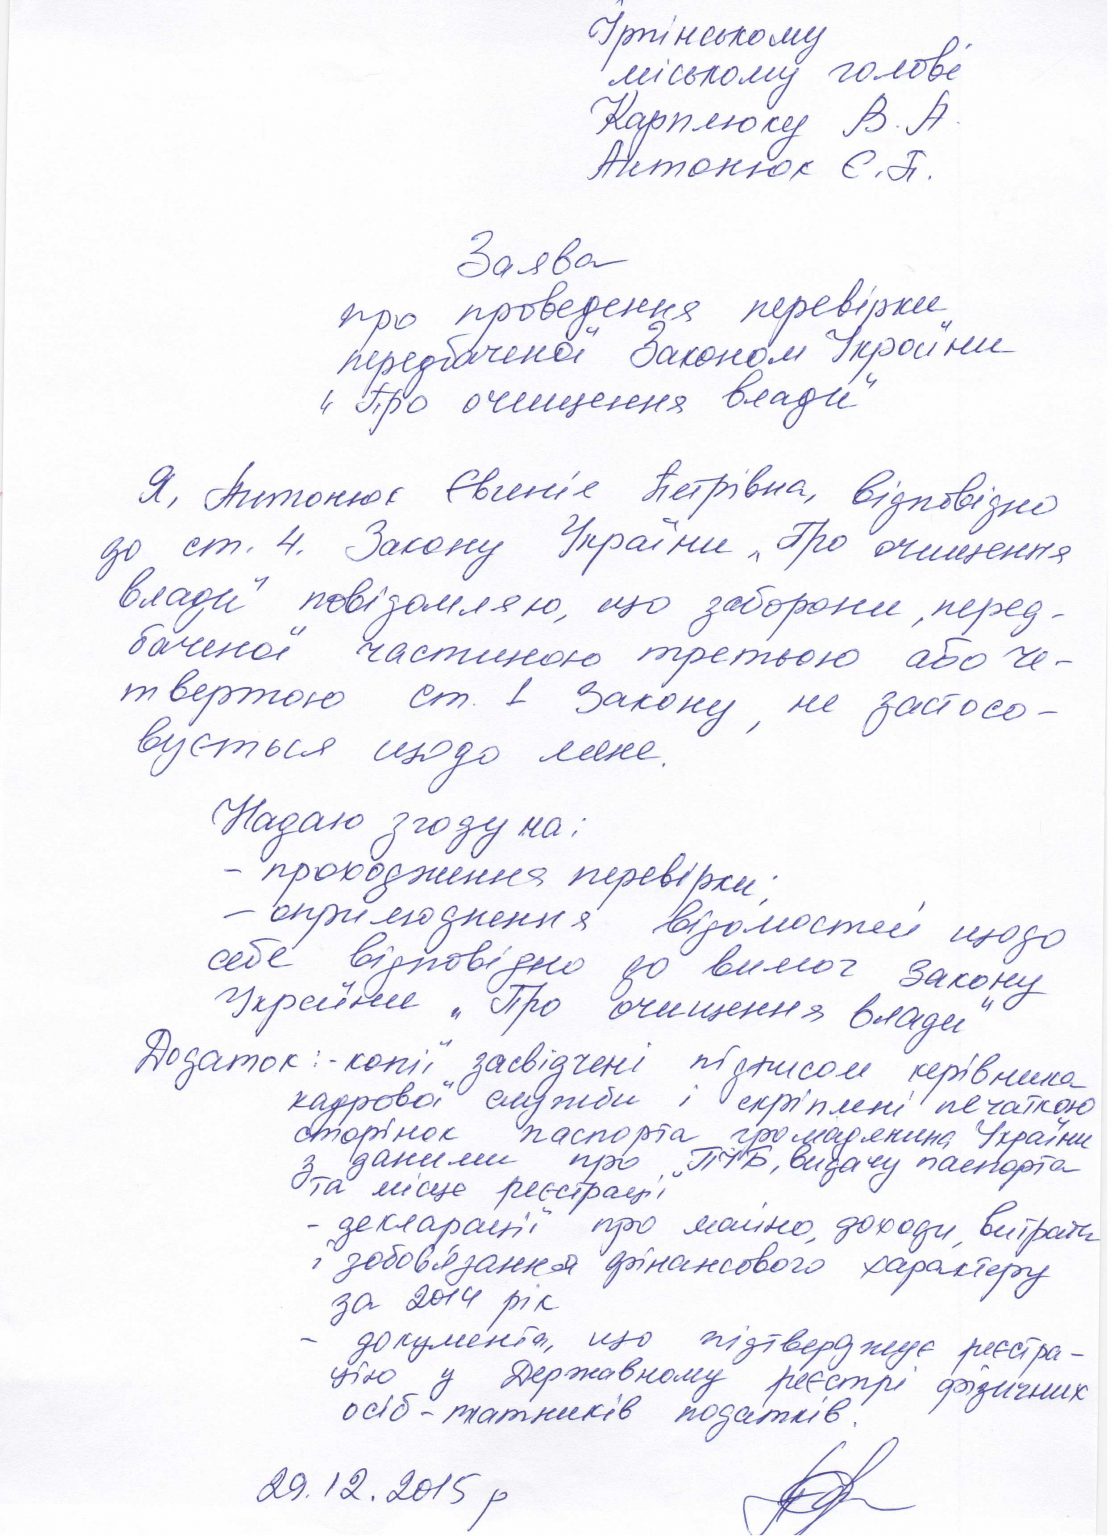 Ірпінському
міському голові
Карплюку В. А.
Антонюк Є. П.
Заява
про проведення перевірки
передбаченої Законом України
„Про очищення влади"
Я, Антонюк Євгенія Петрівна, відповідно
до ст. 4. Закону України „Про очищення
влади" повідомляю, що заборони, перед-
баченої частиною третьою або че-
твертою ст. 1 Закону, не застосо-
вується щодо мене.
Надаю згоду на:
- проходження перевірки;
- оприлюднення відомостей щодо
себе відповідно до вимог Закону
України „Про очищення влади"
Додаток: - копії засвідчені підписом керівника
кадрової служби і скріплені печаткою
сторінок паспорта громадянина України
з даними про ПІБ, видачу паспорта
та місце реєстрації
- декларації про майно, доходи, витрати
і зобов'язання фінансового характеру
за 2014 рік
- документа, що підтверджує реєстра-
цію у Державному реєстрі фізичних
осіб-платників податків.
29.12.2015 р